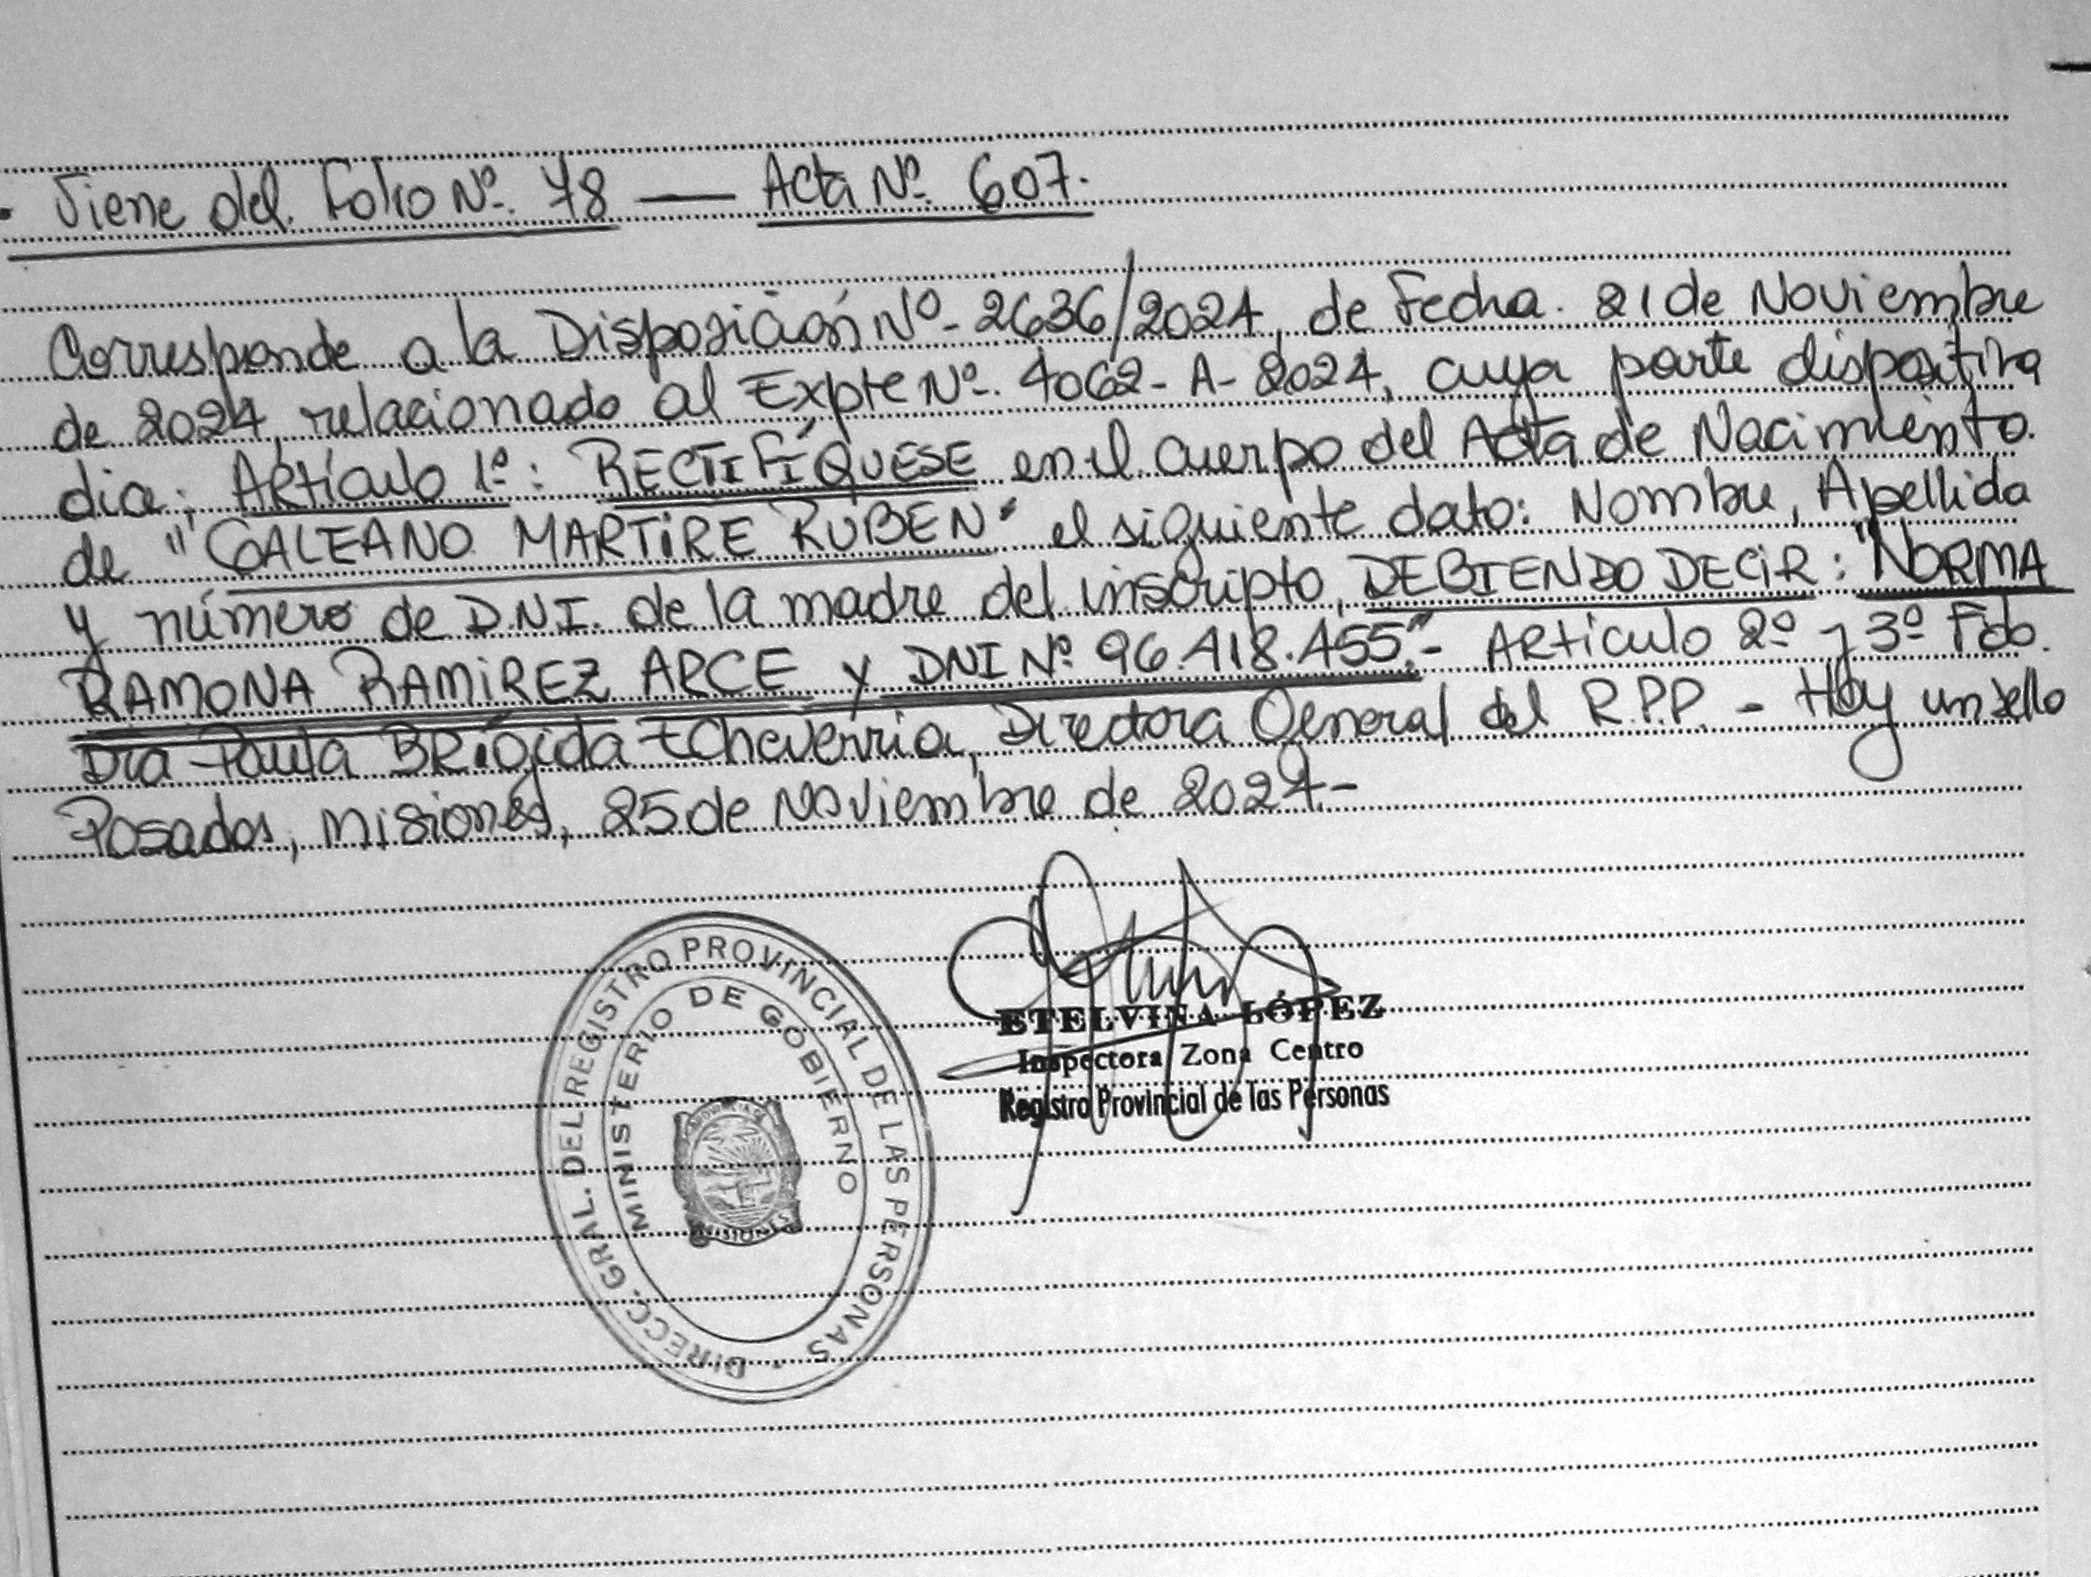 Viene del Folio Nº. 78 — Acta Nº. 607.
Corresponde a la Disposición Nº- 2636/2024, de Fecha. 21 de Noviembre
de 2024, relacionado al Expte Nº. 4062-A-2024, cuya parte dispositiva
dice; Artículo 1º: RECTIFÍQUESE en el cuerpo del Acta de Nacimiento.
de "GALEANO MARTIRE RUBEN" el siguiente dato: Nombre, Apellido
y número de D.N.I. de la madre del inscripto, DEBIENDO DECIR: "NORMA
RAMONA RAMIREZ ARCE y DNI Nº. 96.418.455".- Artículo 2º y 3º Fdo.
Dra Paula BRígida Echeverria, Directora General del R.P.P. - Hay un sello
Posadas, Misiones, 25 de Noviembre de 2024.-
DIRECC. GRAL. DEL REGISTRO PROVINCIAL DE LAS PERSONAS
MINISTERIO DE GOBIERNO
PROVINCIA DE
MISIONES
ETELVINA LÓPEZ
Inspectora Zona Centro
Registro Provincial de las Personas